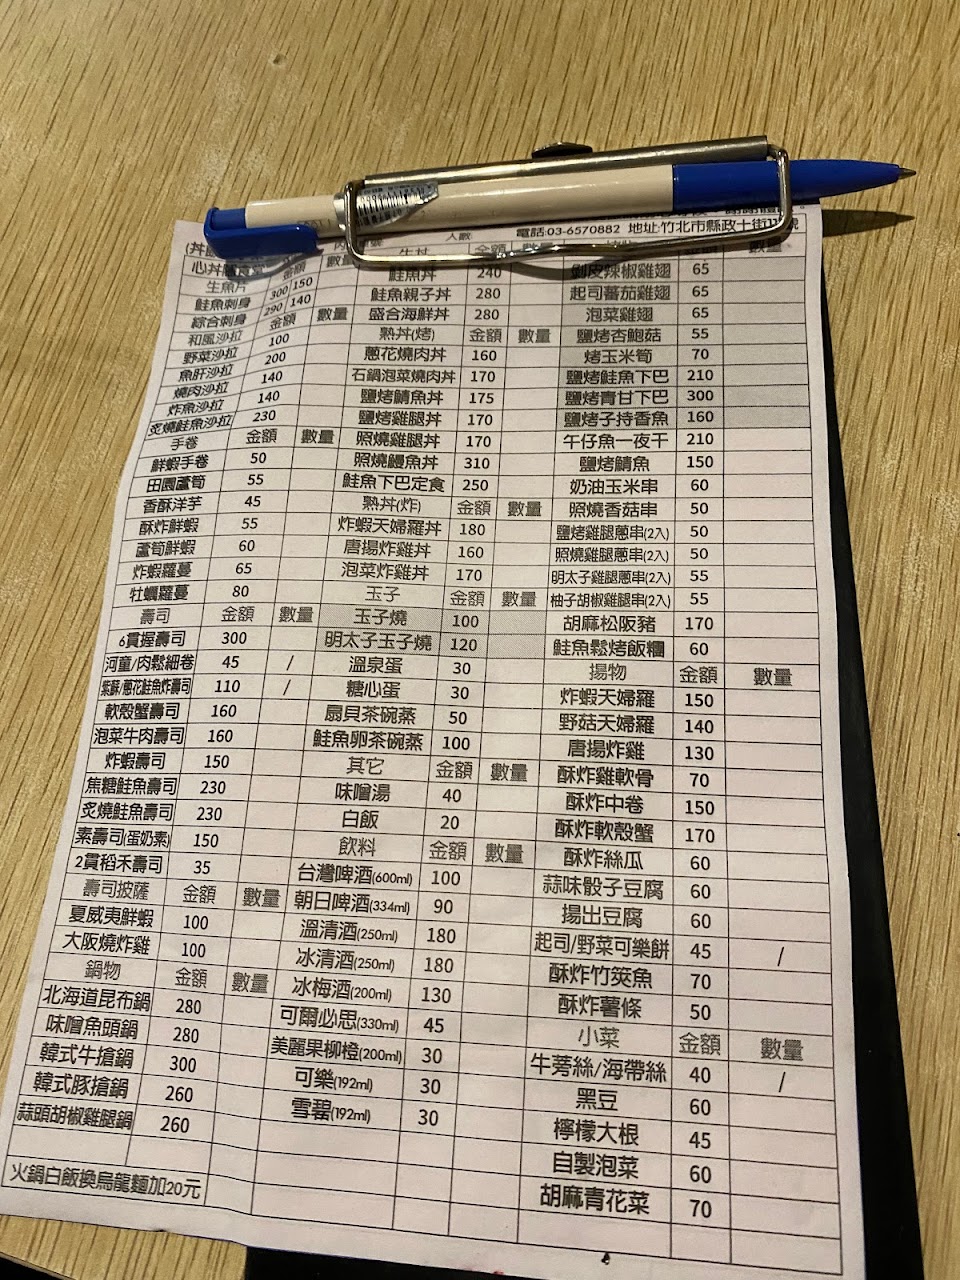 電話:03-6570882 地址:竹北市縣政十街
人數
生魚片 300 150
鮭魚刺身 290 140
綜合刺身 金額 數量
和風沙拉 100
野菜沙拉 200
魚肝沙拉 140
燒肉沙拉 140
炸魚沙拉 230
炙燒鮭魚沙拉
手卷 金額 數量
鮮蝦手卷 50
田園蘆筍 55
香酥洋芋 45
酥炸鮮蝦 55
蘆筍鮮蝦 60
炸蝦蘿蔓 65
牡蠣蘿蔓 80
壽司 金額 數量
6貫握壽司 300
河童/肉鬆細卷 45 /
紫酥/蔥花鮭魚炸壽司 110 /
軟殼蟹壽司 160
泡菜牛肉壽司 160
炸蝦壽司 150
焦糖鮭魚壽司 230
炙燒鮭魚壽司 230
素壽司(蛋奶素) 150
2貫稻禾壽司 35
壽司披薩 金額 數量
夏威夷鮮蝦 100
大阪燒炸雞 100
鍋物 金額 數量
北海道昆布鍋 280
味噌魚頭鍋 280
韓式牛搶鍋 300
韓式豚搶鍋 260
蒜頭胡椒雞腿鍋 260
火鍋白飯換烏龍麵加20元
生丼 金額 數量
鮭魚丼 240
鮭魚親子丼 280
盛合海鮮丼 280
熟丼(烤) 金額 數量
蔥花燒肉丼 160
石鍋泡菜燒肉丼 170
鹽烤鯖魚丼 175
鹽烤雞腿丼 170
照燒雞腿丼 170
照燒鰻魚丼 310
鮭魚下巴定食 250
熟丼(炸) 金額 數量
炸蝦天婦羅丼 180
唐揚炸雞丼 160
泡菜炸雞丼 170
玉子 金額 數量
玉子燒 100
明太子玉子燒 120
溫泉蛋 30
糖心蛋 30
扇貝茶碗蒸 50
鮭魚卵茶碗蒸 100
其它 金額 數量
味噌湯 40
白飯 20
飲料 金額 數量
台灣啤酒(600ml) 100
朝日啤酒(334ml) 90
溫清酒(250ml) 180
冰清酒(250ml) 180
冰梅酒(200ml) 130
可爾必思(330ml) 45
美麗果柳橙(200ml) 30
可樂(192ml) 30
雪碧(192ml) 30
剝皮辣椒雞翅 65
起司蕃茄雞翅 65
泡菜雞翅 65
鹽烤杏鮑菇 55
烤玉米筍 70
鹽烤鮭魚下巴 210
鹽烤青甘下巴 300
鹽烤子持香魚 160
午仔魚一夜干 210
鹽烤鯖魚 150
奶油玉米串 60
照燒香菇串 50
鹽烤雞腿蔥串(2入) 50
照燒雞腿蔥串(2入) 50
明太子雞腿蔥串(2入) 55
柚子胡椒雞腿串(2入) 55
胡麻松阪豬 170
鮭魚鬆烤飯糰 60
揚物 金額 數量
炸蝦天婦羅 150
野菇天婦羅 140
唐揚炸雞 130
酥炸雞軟骨 70
酥炸中卷 150
酥炸軟殼蟹 170
酥炸絲瓜 60
蒜味骰子豆腐 60
揚出豆腐 60
起司/野菜可樂餅 45 /
酥炸竹筴魚 70
酥炸薯條 50
小菜 金額 數量
牛蒡絲/海帶絲 40 /
黑豆 60
檸檬大根 45
自製泡菜 60
胡麻青花菜 70